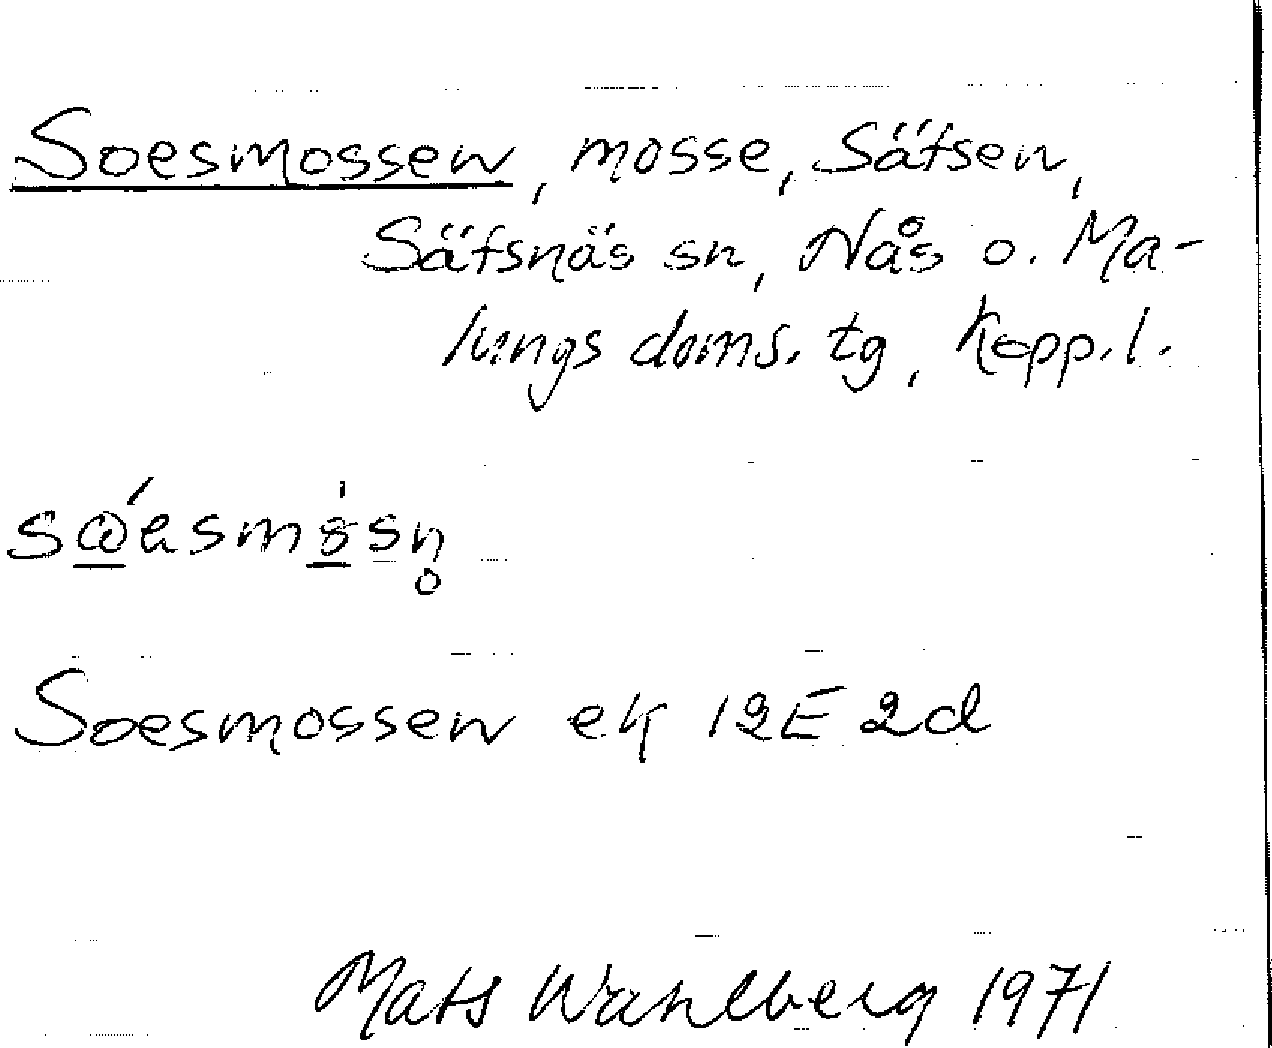 Soesmossen, mosse, Säfsen,
Säfsnäs sn, Nås o. Ma-
lungs doms. tg, Kopp. l.
Soesmossen ek 12E 2d
Mats Wahlberg 1971